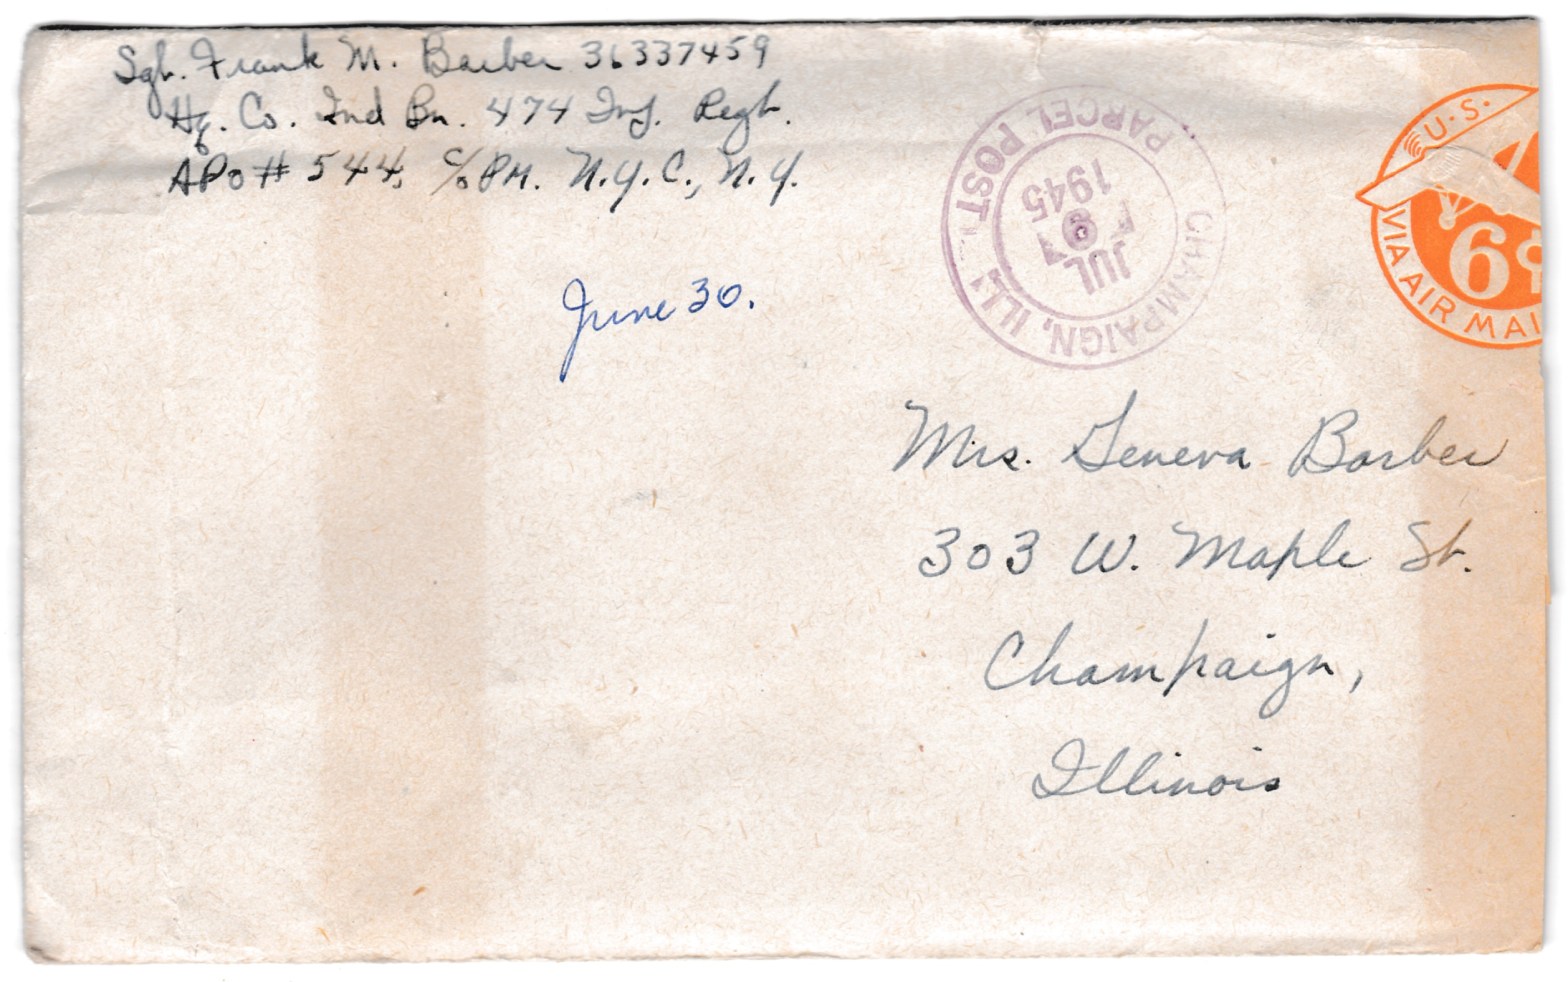 Sgt. Frank M. Barber 36337459
Hq. Co. 2nd Bn. 474 Inf. Regt.
APO # 544, c/o PM. N.Y.C., N.Y.
June 30.
CHAMPAIGN, ILL. PARCEL POST
JUL
1945
U.S.
6¢
VIA AIR MAI
Mrs. Geneva Barber
303 W. Maple St.
Champaign,
Illinois